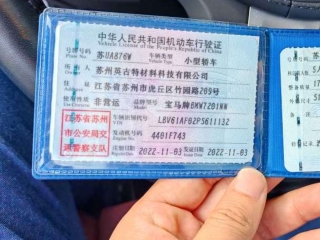 中华人民共和国机动车行驶证
Vehicle License of the People's Republic of China
号牌号码 苏UA876W 车辆类型 小型轿车
Plate No. Vehicle Type
所有人 苏州英古特材料科技有限公司
Owner
住址 江苏省苏州市虎丘区竹园路209号
Address
使用性质 非营运 品牌型号 宝马牌BMW7201WW
江苏省苏州
市公安局交
通警察支队
车辆识别代号 LBV61AF02PS611132
VIN
发动机号码 4401F743
注册日期 2022-11-03 发证日期 2022-11-03
Register Date Issue Date